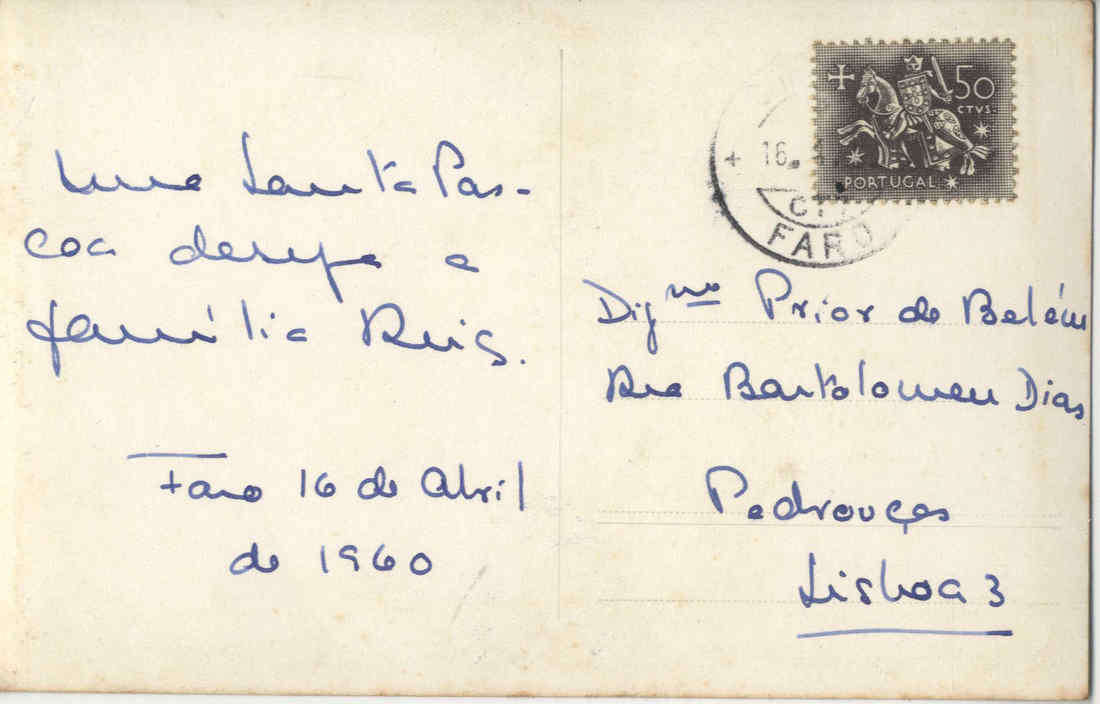 Uma Santa Pás-
coa deseja a
família Ruis.
Faro 16 de Abril
de 1960
50
CTVS.
PORTUGAL
16.
CTT
FARO
Dig.mo Prior de Belém
Rua Bartolomeu Dias
Pedrouços
Lisboa 3